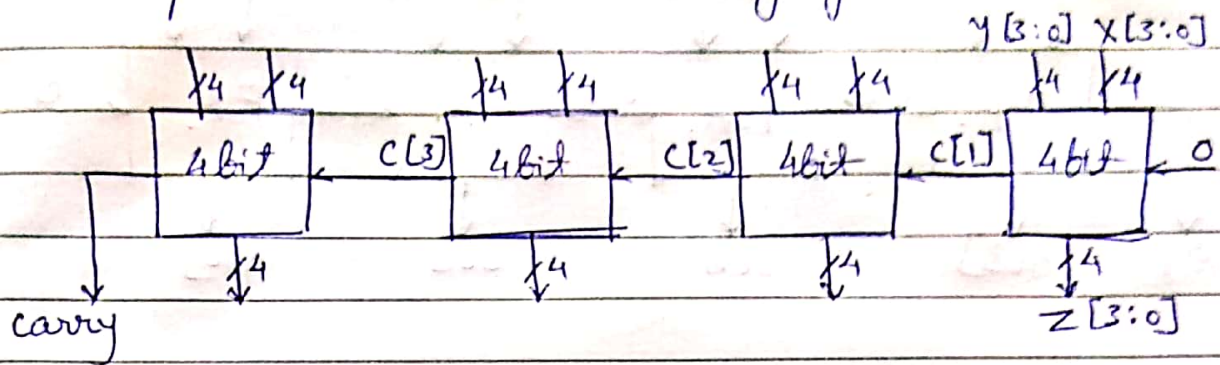 Y[3:0] X[3:0]
4 4 4 4 4 4 4 4
4bit C[3] 4bit C[2] 4bit C[1] 4bit 0
4 4 4 4
carry Z[3:0]